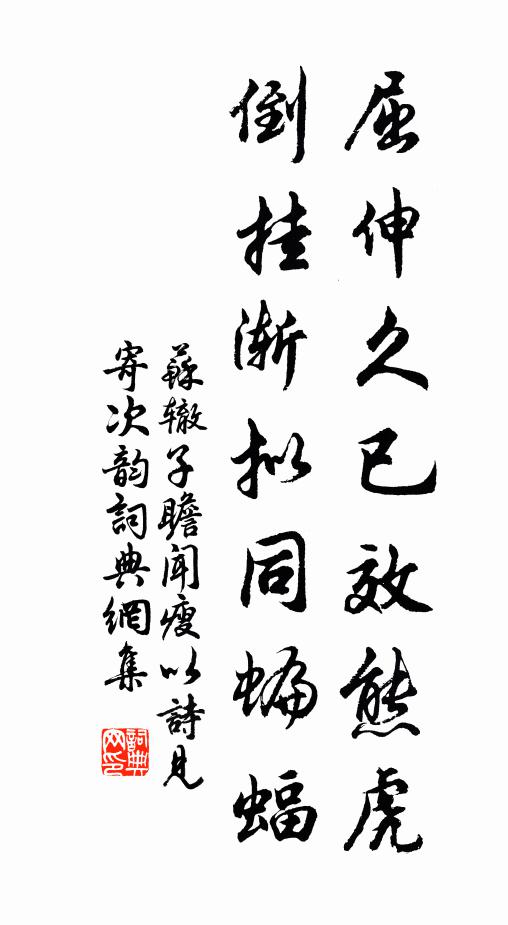 屈伸久已效熊虎
倒挂渐拟同蝙蝠
蘇辙子瞻闻瘦以詩見
寄次韵詞典網集
詞典
网印